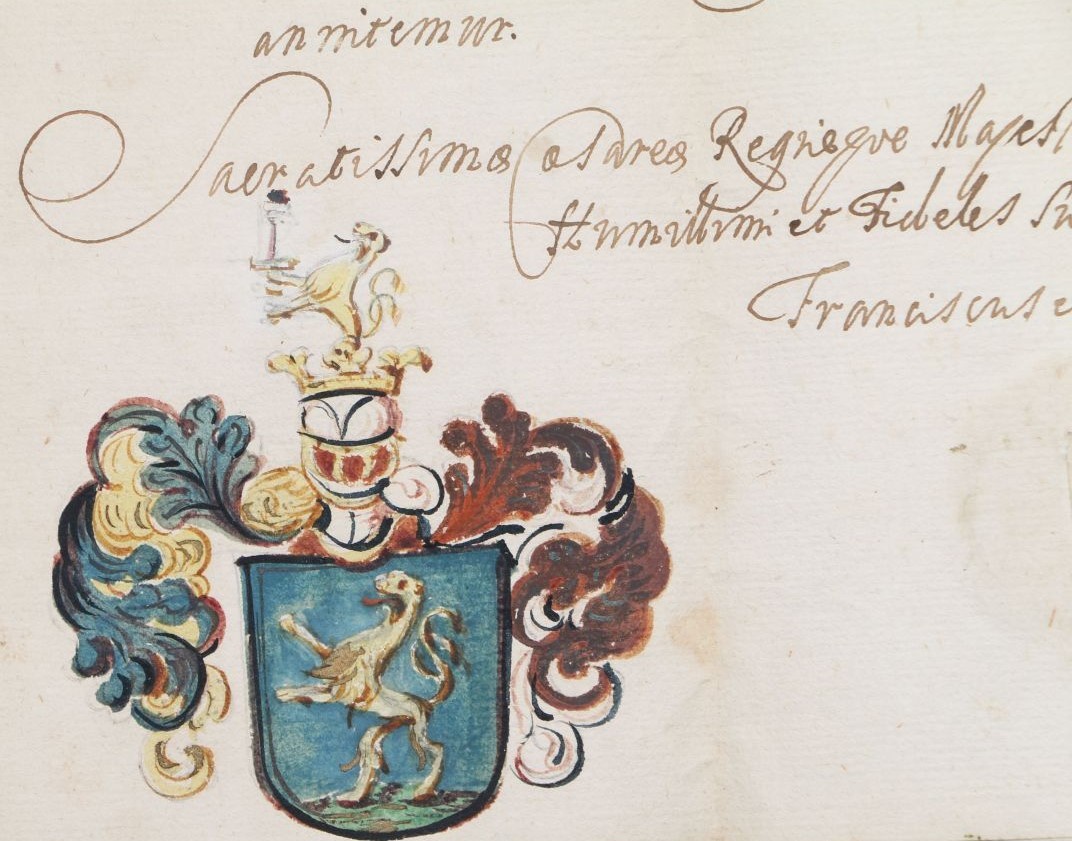 annitemur.
Sacratissimæ Cæsareæ Regiæqve Majest
Humillimi et Fideles Su
Franciscus e